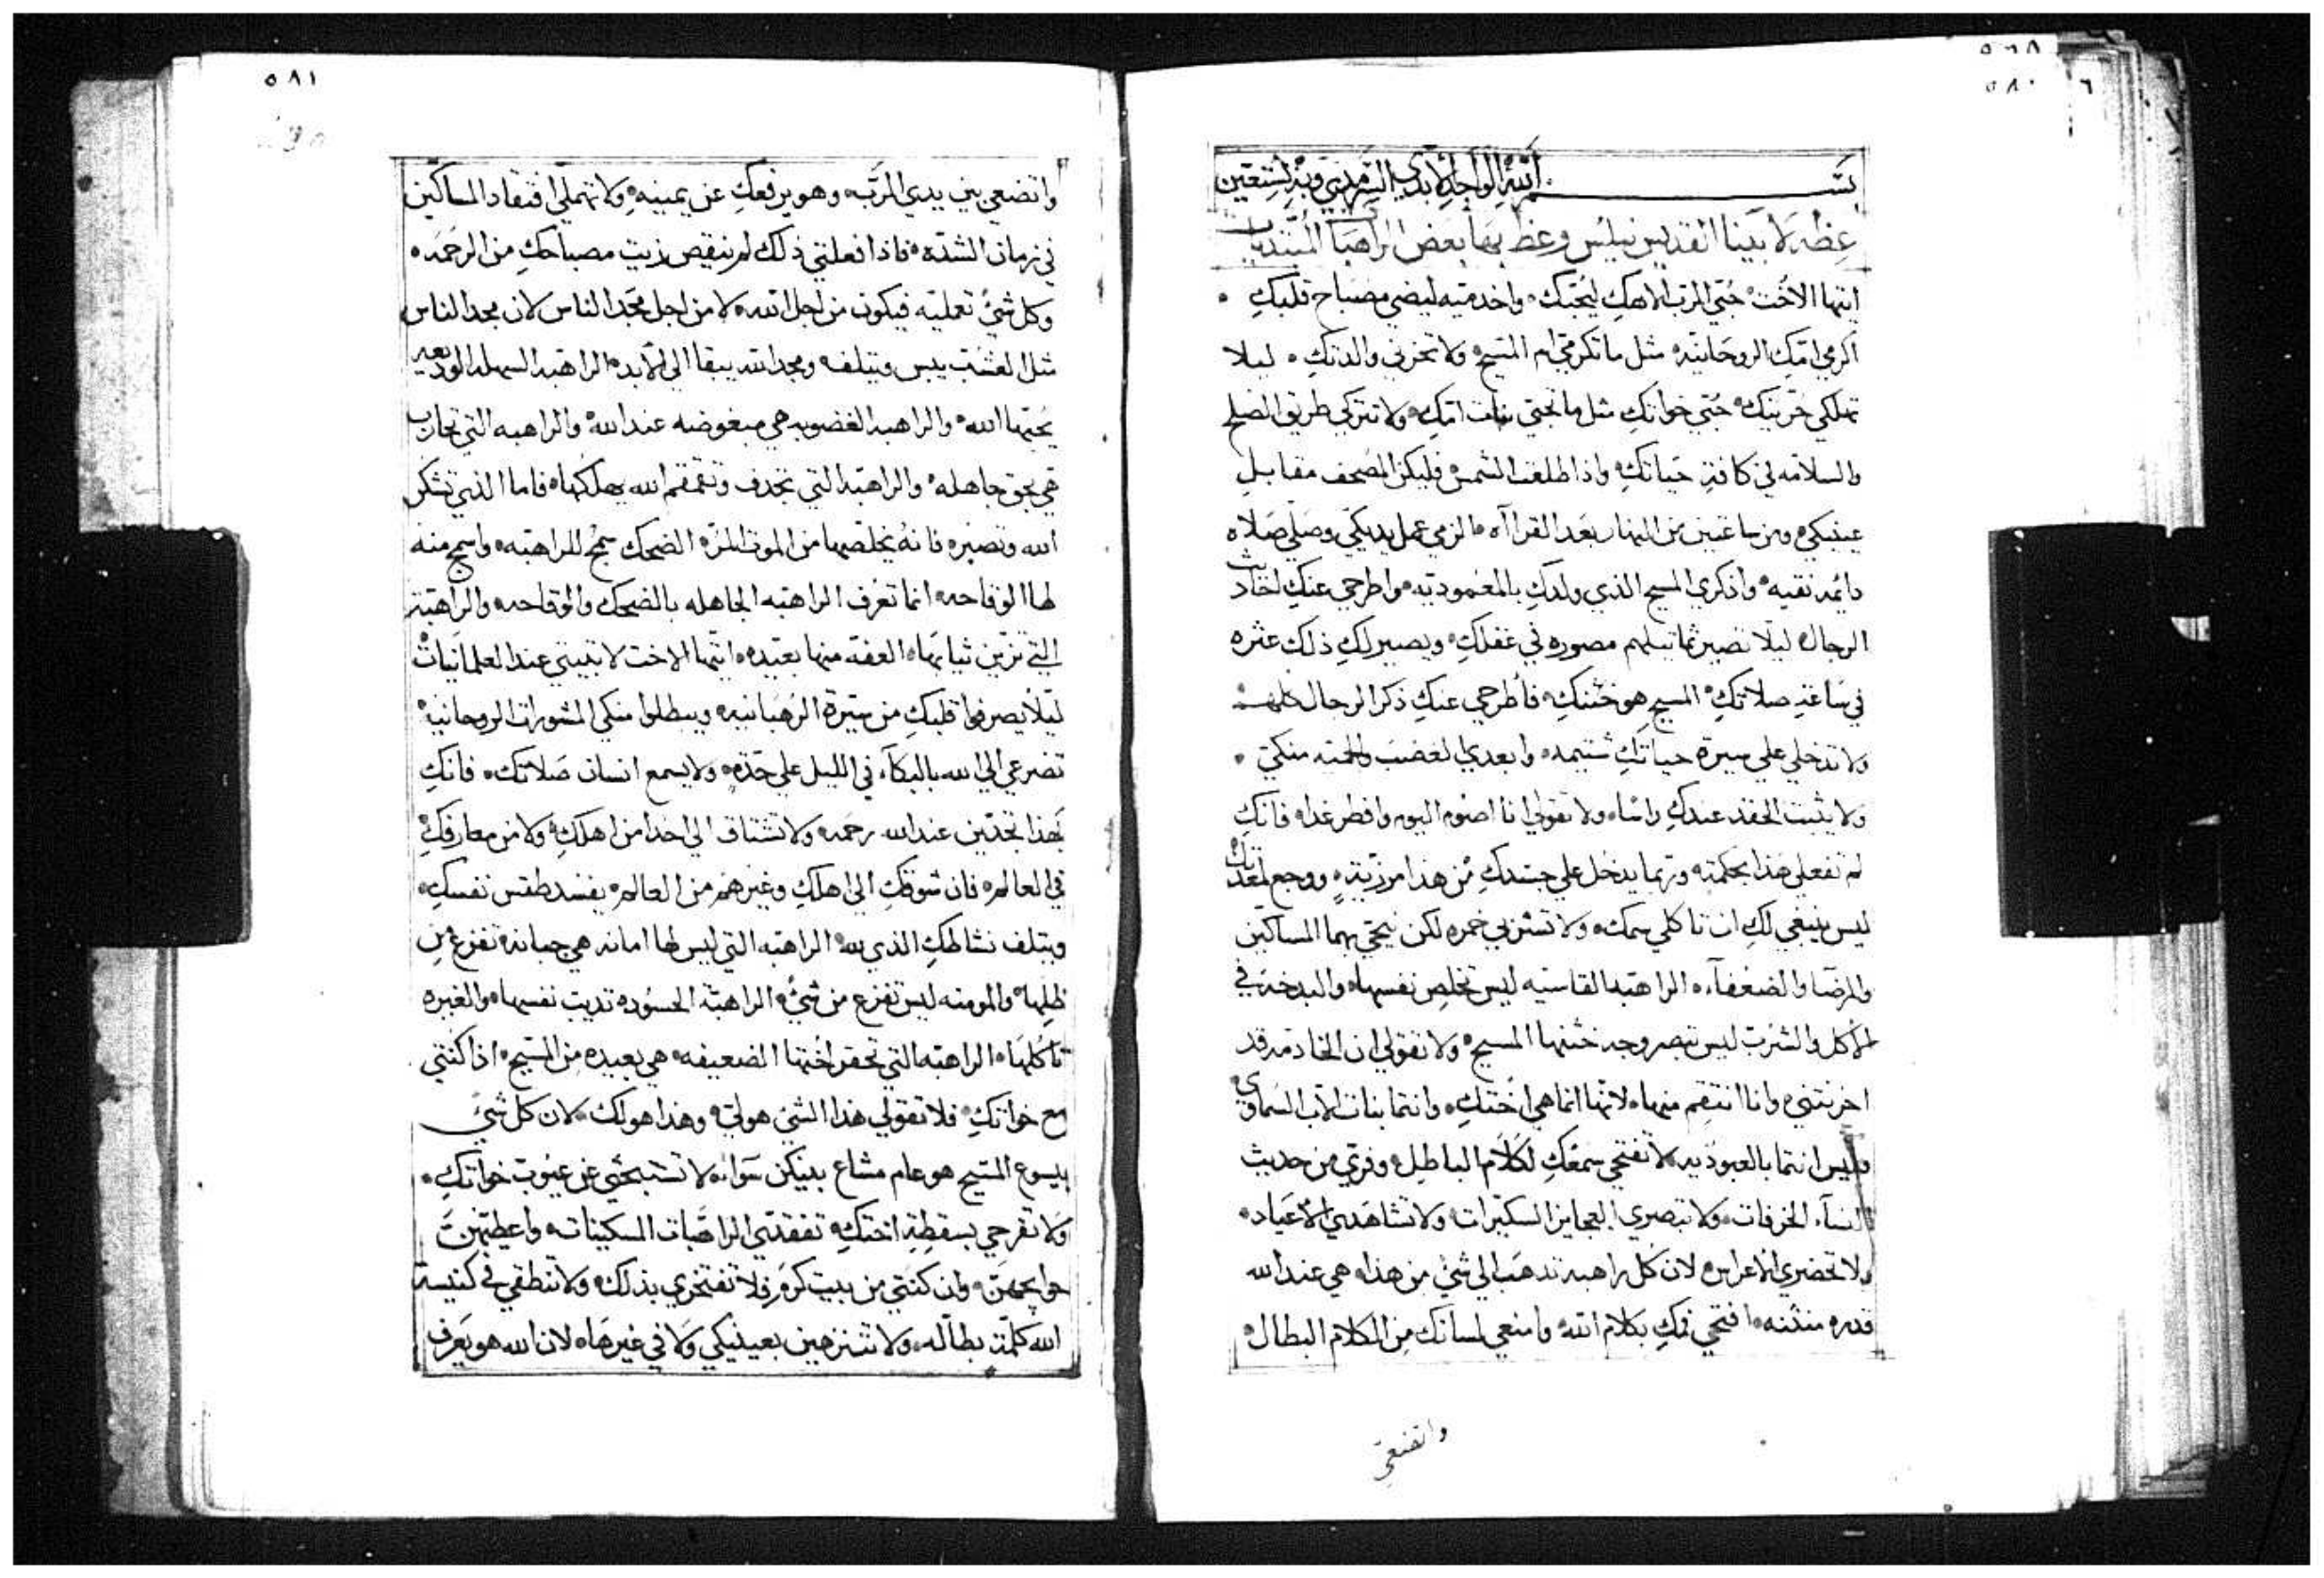 ٥٦٨
٥٨٠ ٦
بسم الله الواحد الابدي السرمدي وبه نستعين
عظه لابينا القديس نيلس وعظ بها بعض الراهبات المبتديات
ايتها الاخت حبي الرب الاهكِ ليحبك واخدميه ليضي مصباح قلبكِ
اكرمي امك الروحانيه مثل ما تكرمي ام المسيح ولا تحزني والدتكِ ليلا
تهلكي حريتك حبي خواتكِ مثل ما تحبي بنات امكِ ولا تتركي طريق الصلح
والسلامه في كافة حياتكِ واذا طلعت الشمس فليكن المصحف مقابل
عينيكي ومن ساعتين من النهار بعد القرااه الزمي عمل يديكي وصلي صلاه
دايمه نقيه واذكري المسيح الذي ولدكِ بالمعموديه واطرحي عنكِ احاديث
الرجال ليلا تصير تماثيلهم مصوره في عقلكِ ويصير لكِ ذلك عثره
في ساعة صلاتكِ المسيح هو ختنكِ فاطرحي عنكِ ذكر الرجال كلهم
ولا تدخلي علي سيرة حياتكِ شتيمه وابعدي الغضب والحمية منكي
ولا يثبت الحقد عندكِ راسا ولا تقولي انا اصوم اليوم وافطر غدا فانكِ
لم تفعلي هذا بحكمه وربما يدخل علي جسدكِ من هذا مرزية ووجع لمعدتك
ليس ينبغي لكِ ان تاكلي سمك ولا تشربي خمره لكن يحيي بهما المساكين
والمرضا والضعفاء الراهبه القاسيه ليس تخلص نفسها والبدخة في
الاكل والشرب ليس تبصر وجه ختنها المسيح ولا تقولي ان الخادمه قد
احزنتني وانا انتقم منها لانها انما هي اختكِ وانتما بنات الاب السماوي
وليس انتما بالعبوديه لا تفتحي سمعكِ لكلام الباطل وفري من حديث
النساء الخرفات ولا تبصري العجايز السكيرات ولا تشاهدي الاعياد
ولا تحضري الاعراس لان كل راهبه تدهب الي شي من هذا هي عند الله
قدره منتنه افتحي فمكِ بكلام الله وامنعي لسانك من الكلام البطال
واتضعي
٥٨١
واتضعي بين يدي الرب وهو يرفعكِ عن يمينه ولا تهملي افتقاد المساكين
في زمان الشده فاذا فعلتي ذلك لم ينقص زيت مصباحكِ من الرحمه
وكل شي تعمليه فيكون من اجل الله لا من اجل مجد الناس لان مجد الناس
مثل العشب يبس ويتلف ومجد الله يبقا الي الابد الراهبه السهله الوديعه
يحبها الله والراهبه الغضوبه هي مبغوضه عند الله والراهبه التي تحارب
هي بحق جاهله والراهبه التي تجدف وتقمقم الله يهلكها فاما الذي تشكر
الله وتصبر فانه يخلصها من الموت المره الضحك سمج للراهبه واسمج منه
لها الوقاحه انما تعرف الراهبه الجاهله بالضحك والوقاحه والراهبة
التي تزين ثيابها العفه منها بعيده ايتها الاخت لا تبيتي عند العلمانيات
ليلا يصرفوا قلبكِ من سيرة الرهبانيه ويبطلوا منكي المشورات الروحانية
تضرعي الي الله بالبكاء في الليل علي حدة ولا يسمع انسان صلاتك فانكِ
بهذا تجدين عند الله رحمه ولا تشتاقي الي احدا من اهلكِ ولا من معارفكِ
في العالم فان شوقكِ الي اهلكِ وغيرهم من العالم يفسد طقس نفسكِ
ويتلف نشاطكِ الذي لله الراهبه التي ليس لها امانه هي جبانه تفزع من
ظلها والمومنه ليس تفزع من شي الراهبة الحسوده تديب نفسها والغيره
تاكلها الراهبه التي تحقر اختها الضعيفه هي بعيده من المسيح اذا كنتي
مع خواتكِ فلا تقولي هذا الشي هو لي وهذا هو لك لان كل شي
بيسوع المسيح هو عام مشاع بينكن سواء لا تستبحثي عن عيوب خواتكِ
ولا تفرحي بسقطة اختكِ تفقدي الراهبات المسكينات واعطيهن
حوايجهن وان كنتي من بيت كرم فلا تفتخري بذلك ولا تنطقي في كنيسة
الله كلمة بطاله ولا تتنزهين بعينيكي ولا في غيرها لان الله هو يعرف